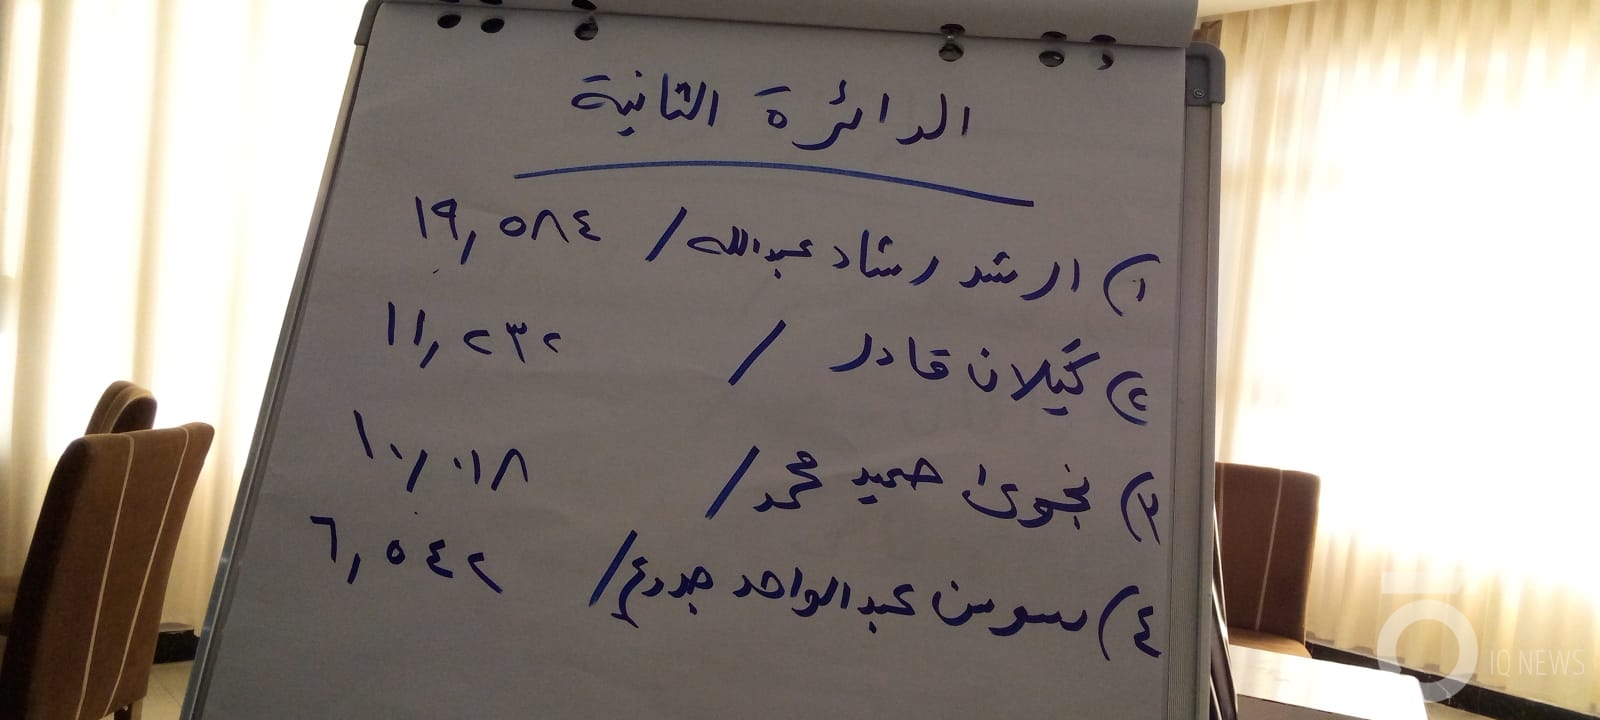 الدائرة الثانية
١) ارشد رشاد عبدالله / ١٩,٥٨٤
٢) گيلان قادر / ١١,٢٣٢
٣) نجوى حميد محمد / ١٠,٠١٨
٤) سوسن عبدالواحد جدوع / ٦,٥٤٢
IQ NEWS